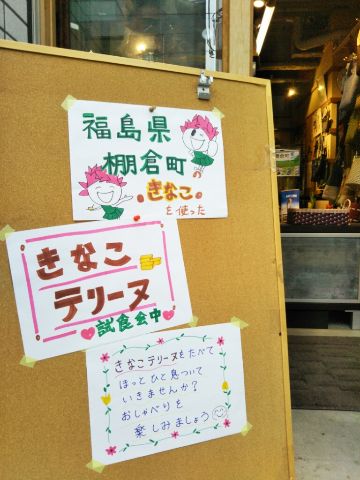 福島県
棚倉町の
きなこ
を使った
きなこ
テリーヌ
試食会中
きなこテリーヌをたべて
ほっとひと息ついて
いきませんか？
おしゃべりを
楽しみましょう